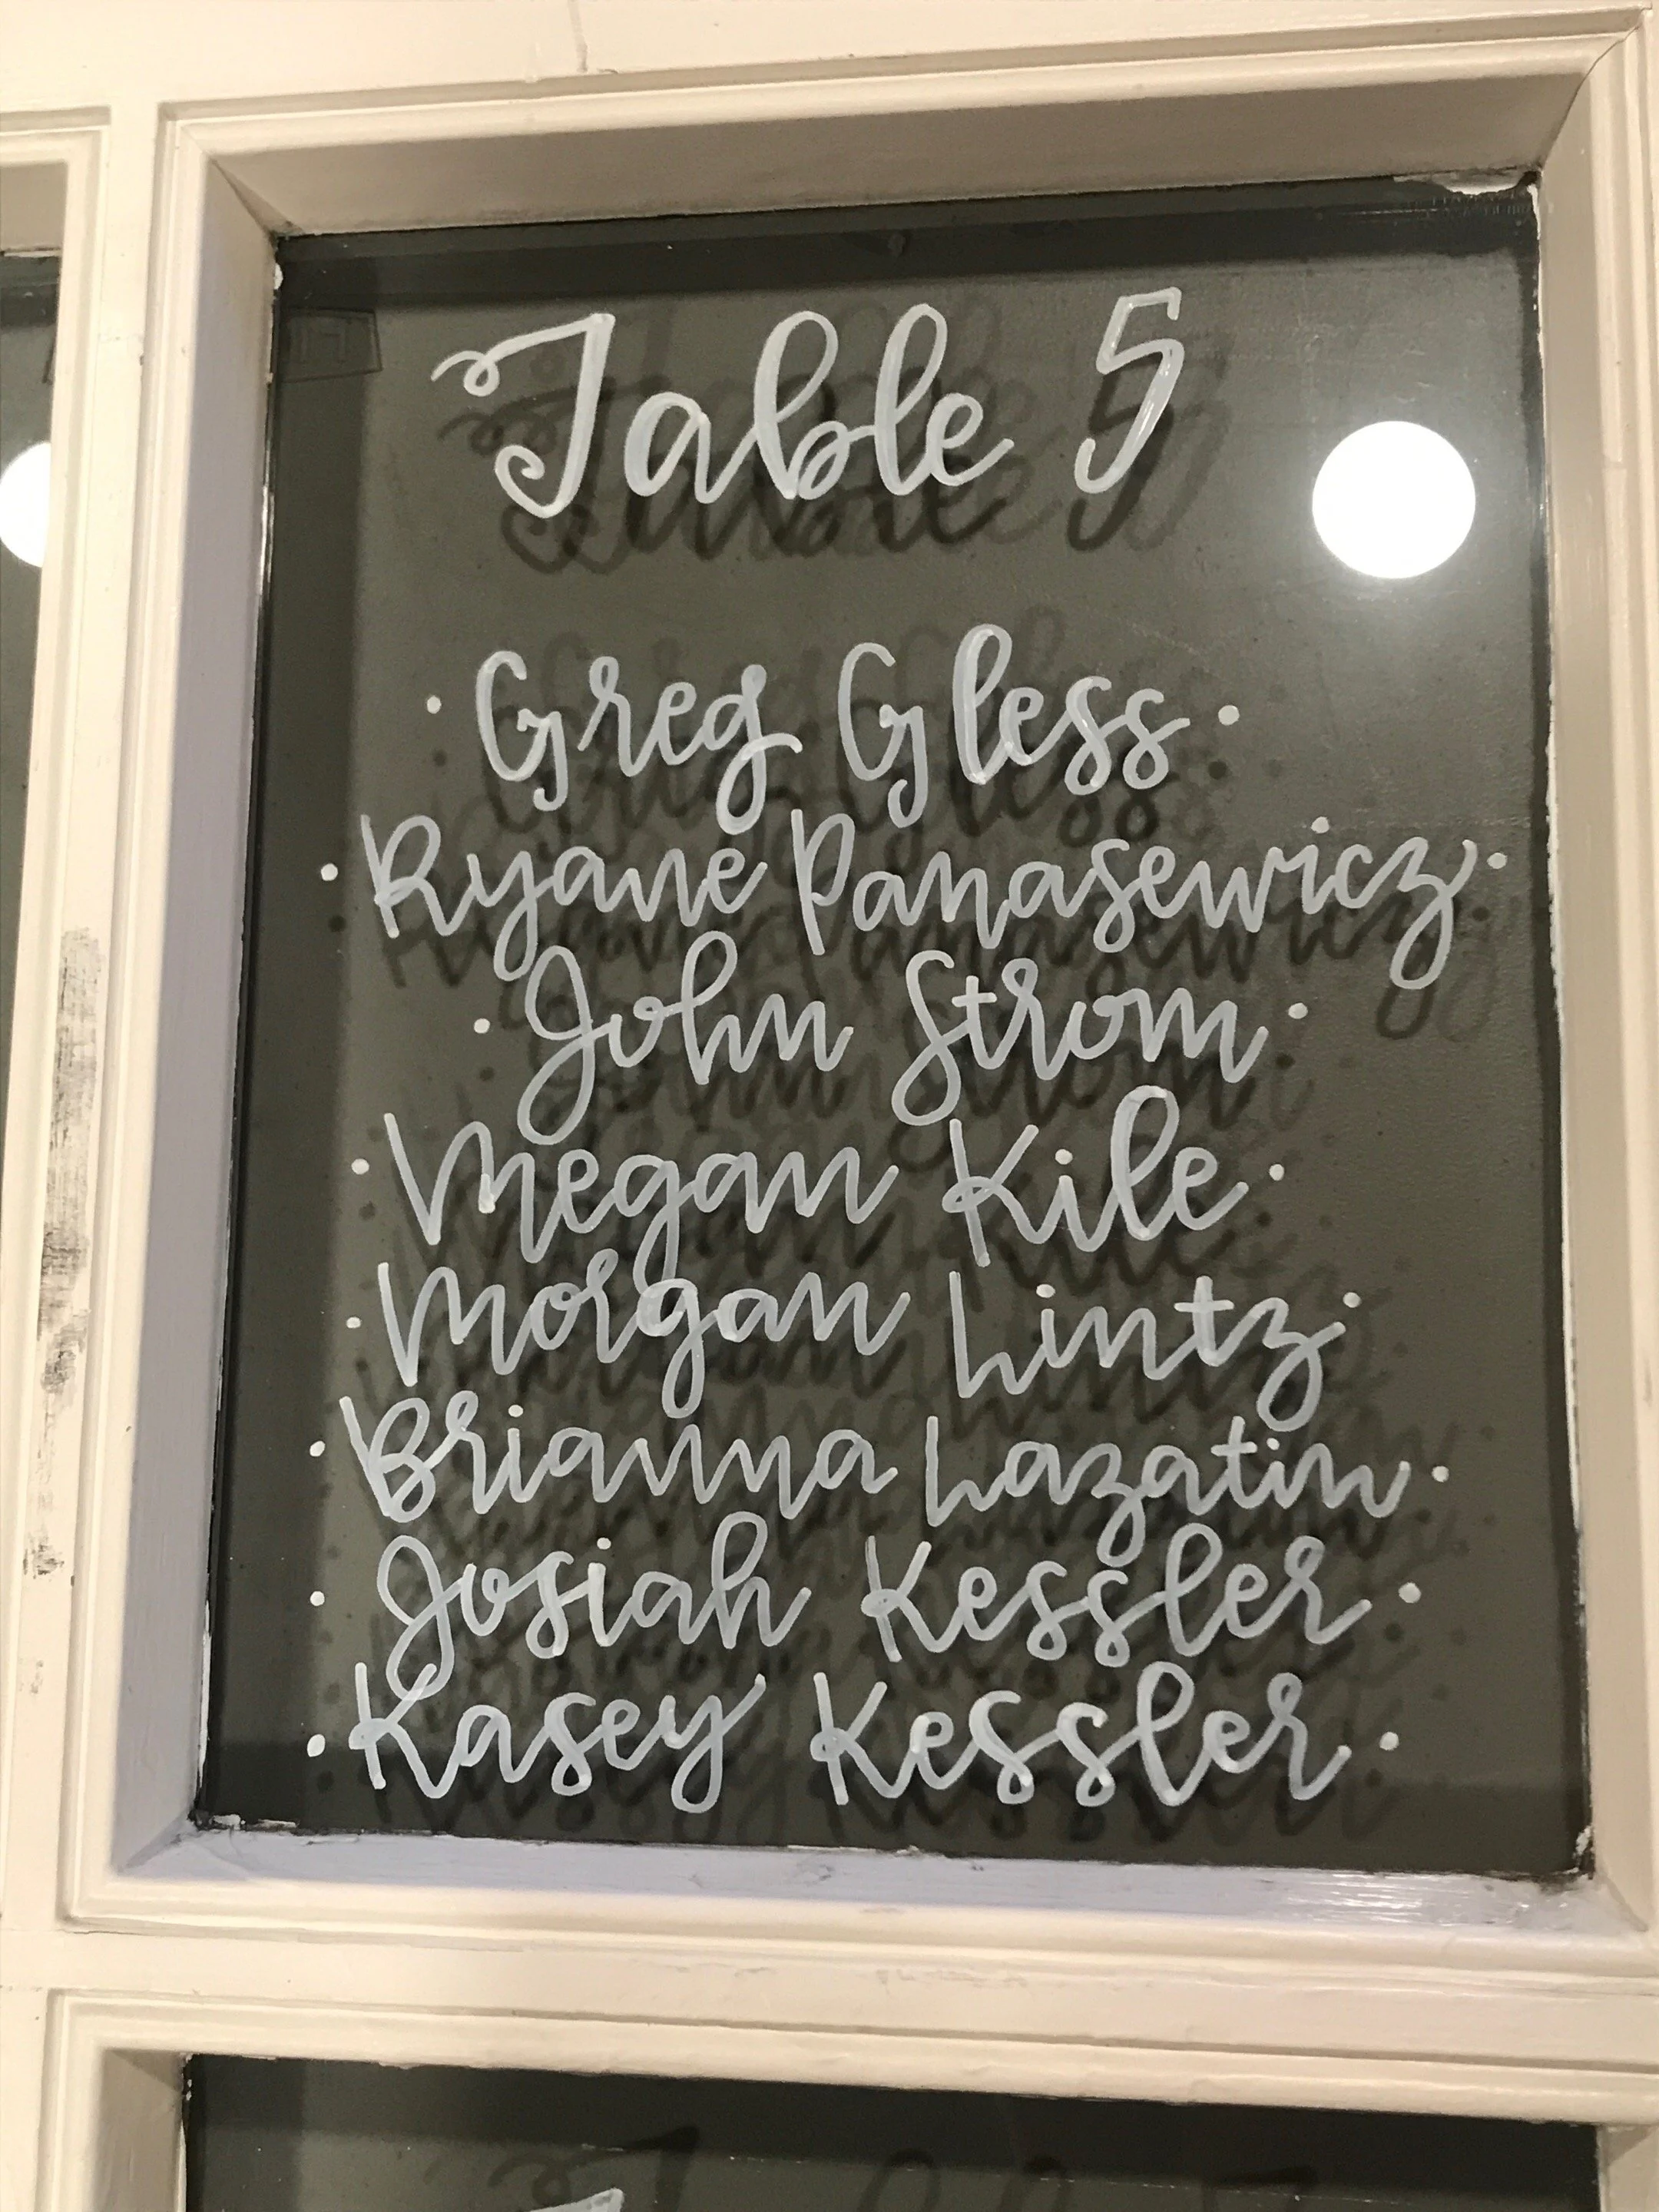 Table 5
· Greg Gless ·
· Ryane Panasewicz ·
· John Strom ·
· Megan Kile ·
· Morgan Lintz ·
· Brianna Lazatin ·
· Josiah Kessler ·
· Kasey Kessler ·